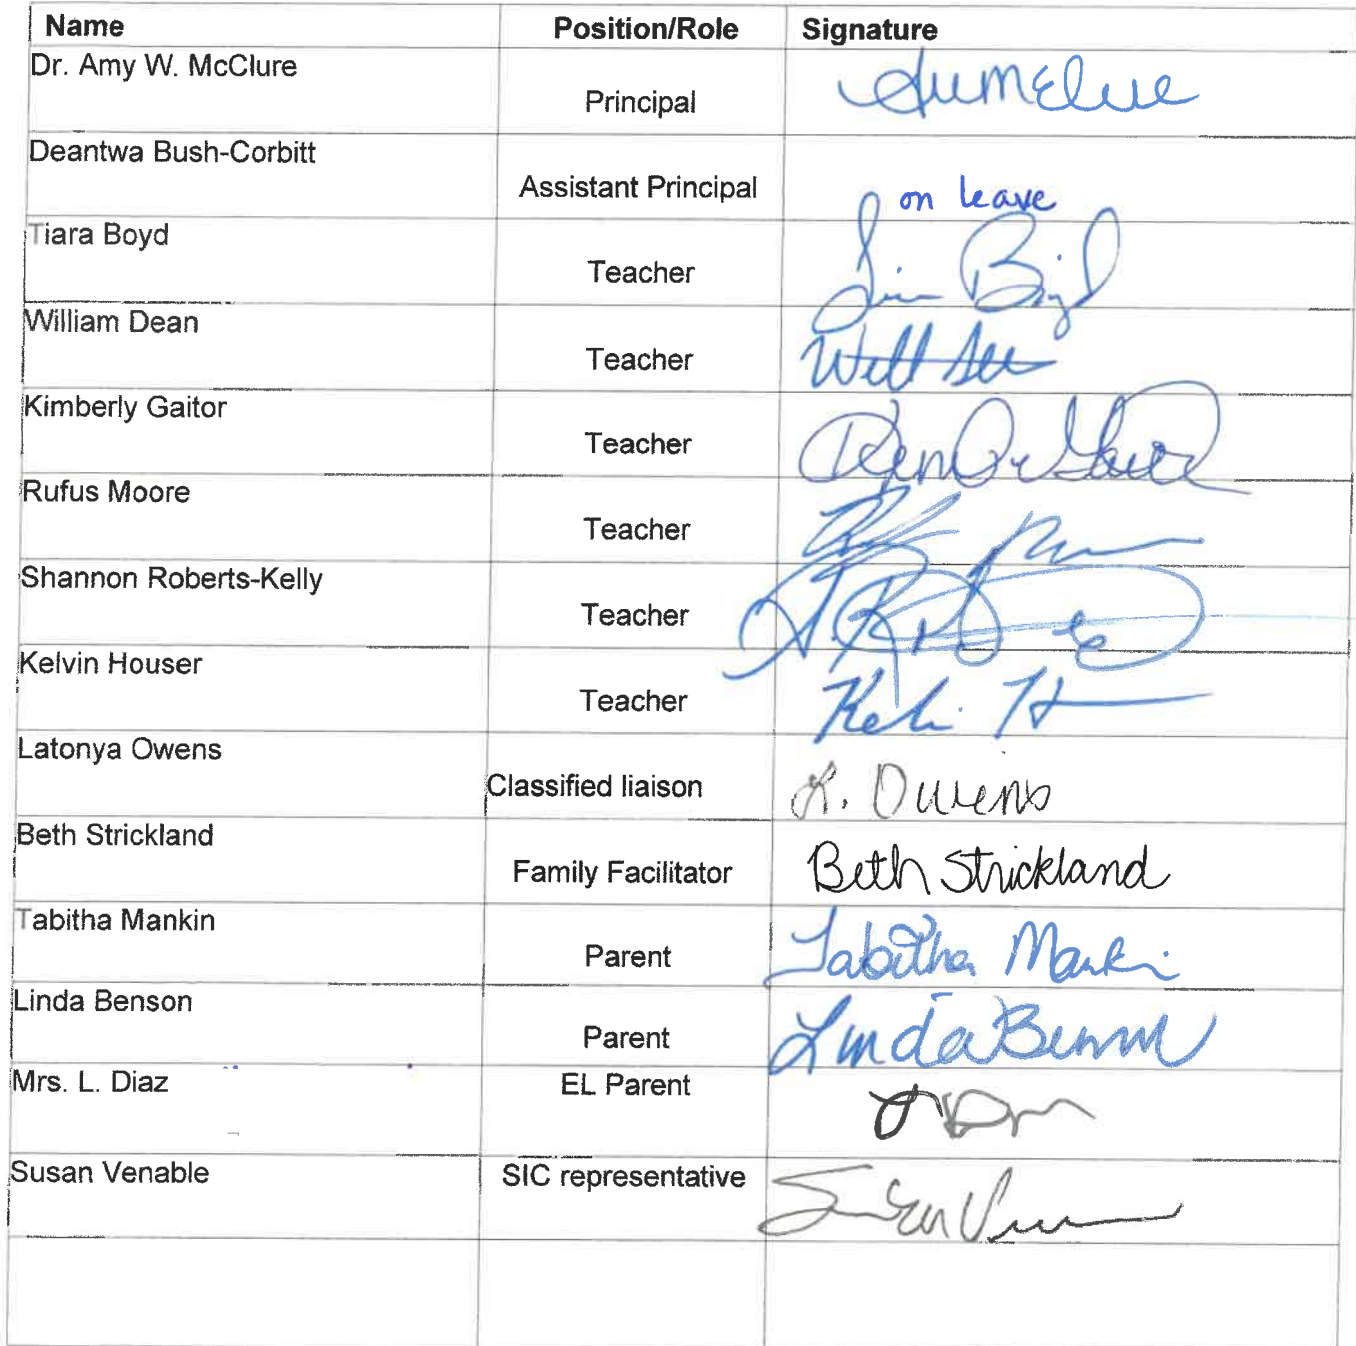 Name Position/Role Signature
Dr. Amy W. McClure Principal
Deantwa Bush-Corbitt Assistant Principal on leave
Tiara Boyd Teacher
William Dean Teacher
Kimberly Gaitor Teacher
Rufus Moore Teacher
Shannon Roberts-Kelly Teacher
Kelvin Houser Teacher
Latonya Owens Classified liaison L. Owens
Beth Strickland Family Facilitator Beth Strickland
Tabitha Mankin Parent Tabitha Mankin
Linda Benson Parent Linda Benson
Mrs. L. Diaz EL Parent
Susan Venable SIC representative